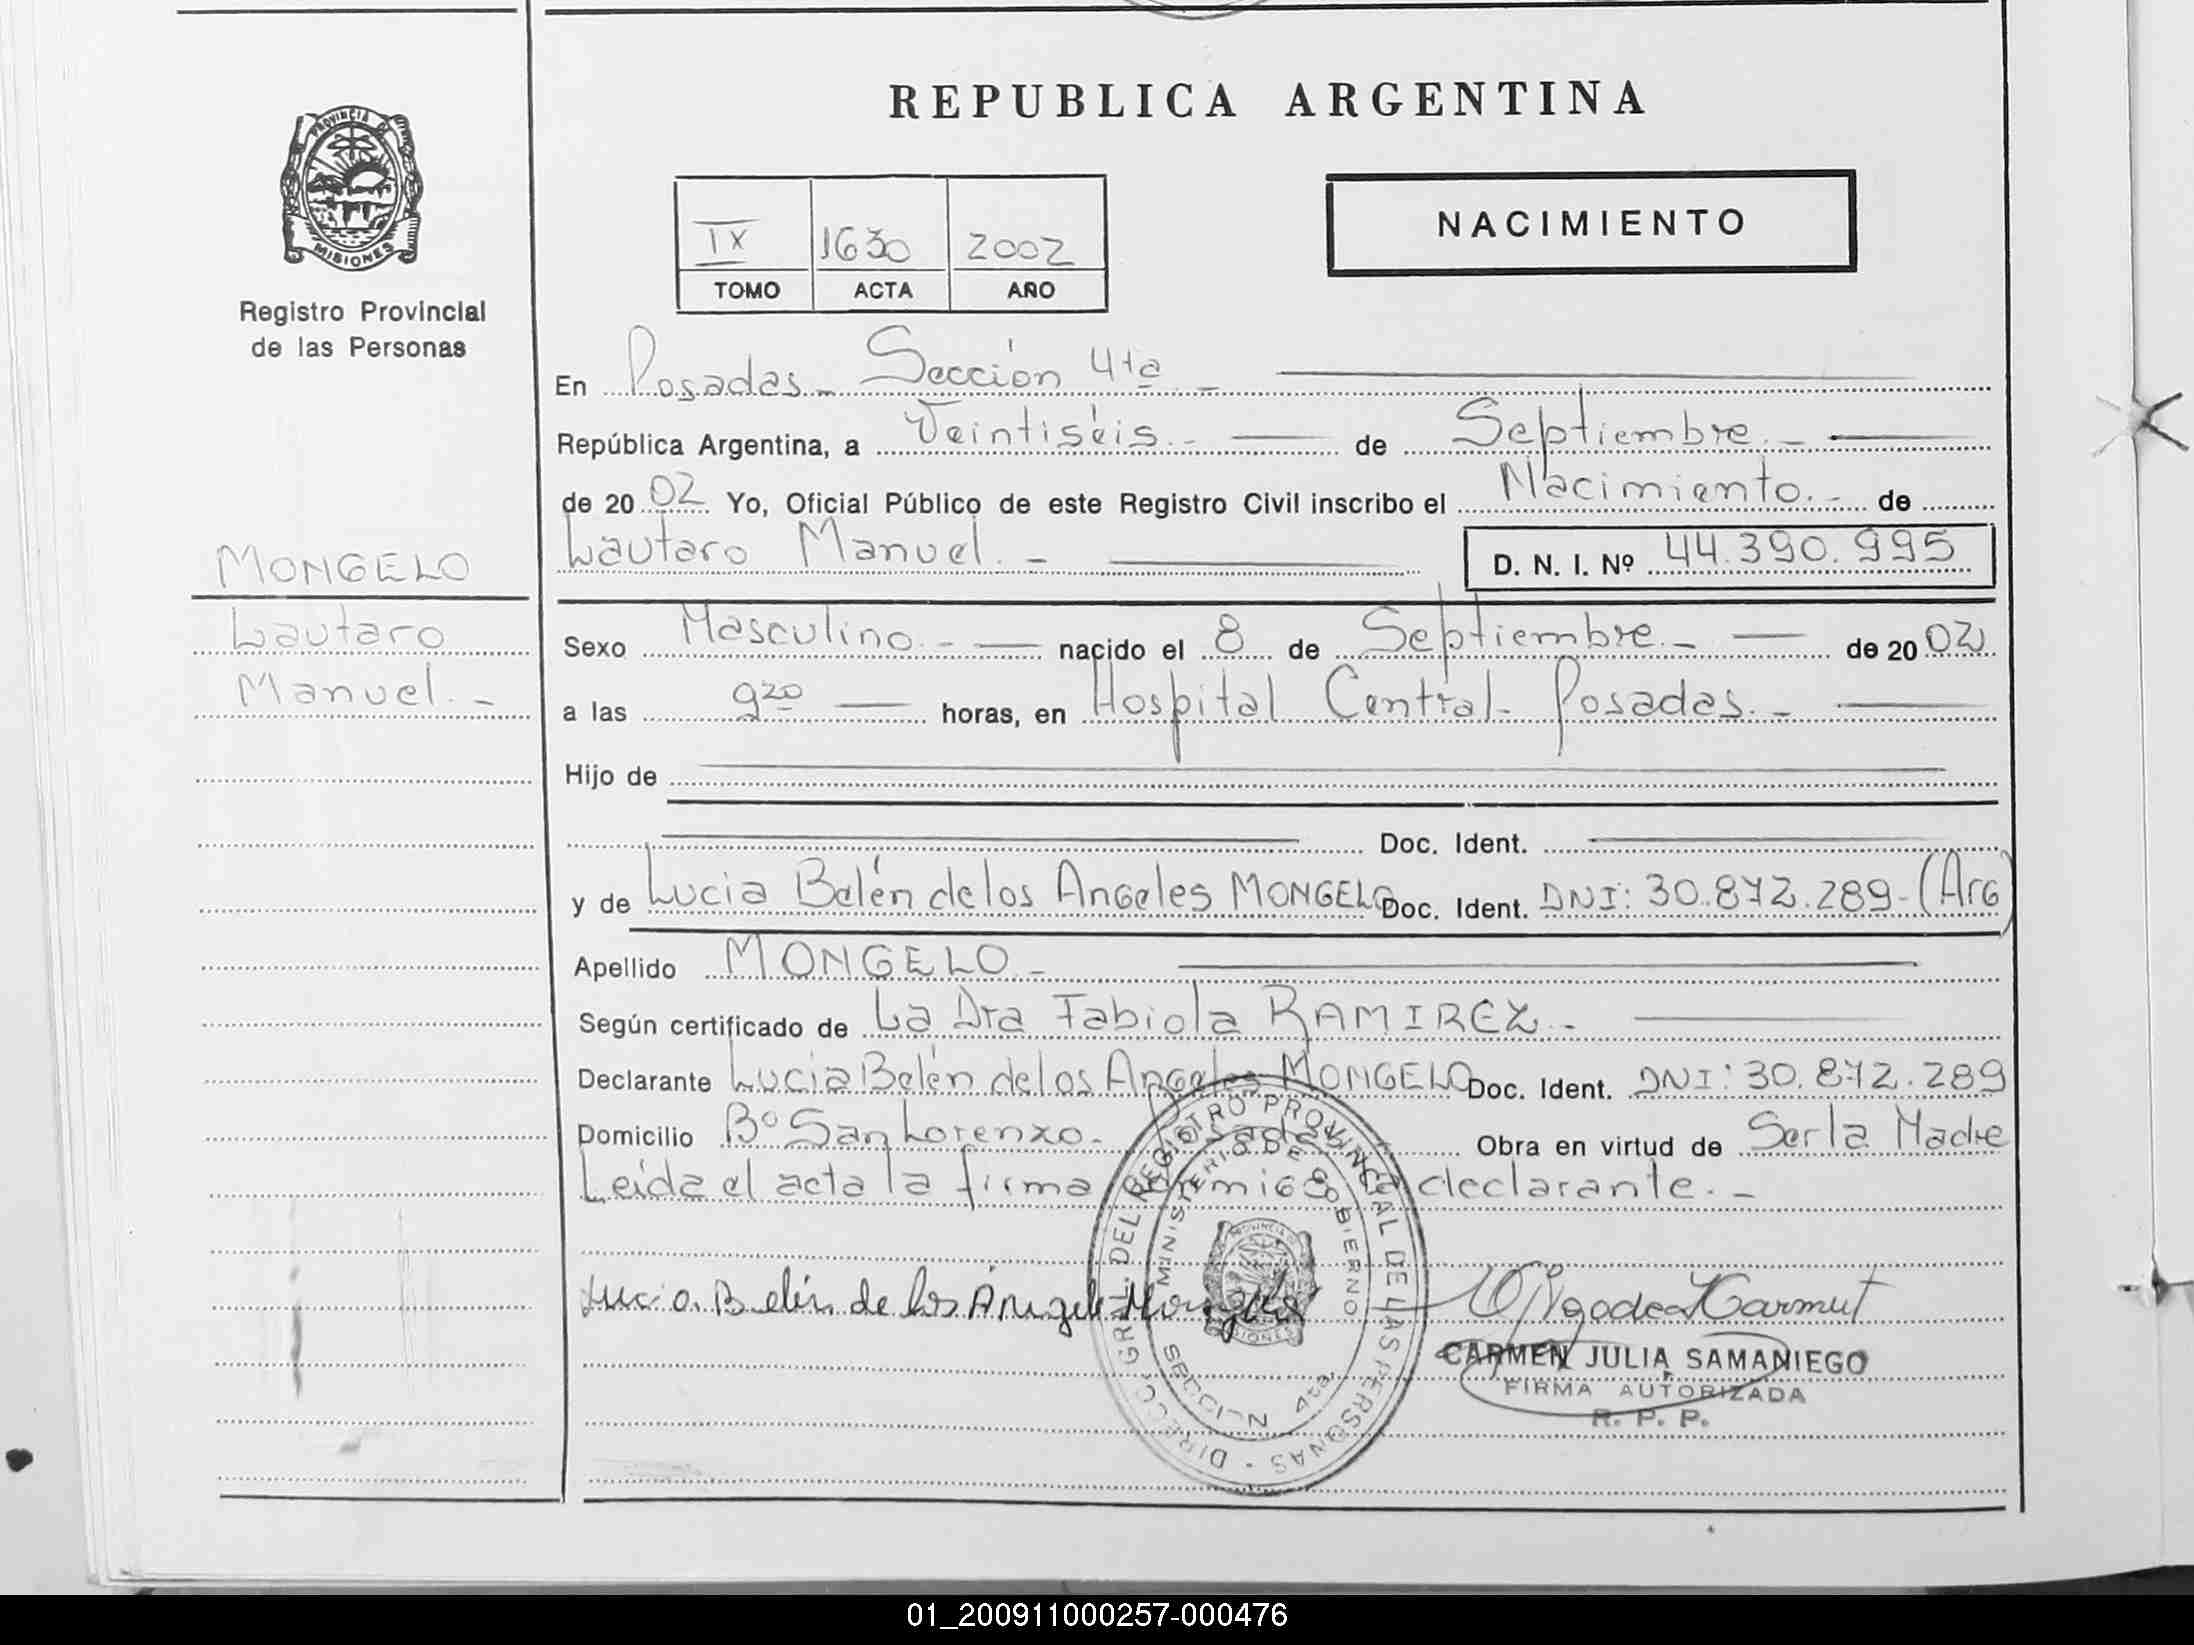 REPUBLICA ARGENTINA
PROVINCIA DE
MISIONES
Registro Provincial
de las Personas
NACIMIENTO
IX 1630 2002
TOMO ACTA AÑO
En Posadas - Sección 4ta -
República Argentina, a Veintiséis.- de Septiembre.-
de 2002 Yo, Oficial Público de este Registro Civil inscribo el Nacimiento.- de
Lautaro Manuel.- D. N. I. Nº 44.390.995
MONGELO
Lautaro
Manuel.-
Sexo Masculino.- nacido el 8 de Septiembre.- de 2002
a las 9 20 horas, en Hospital Central - Posadas.-
Hijo de
Doc. Ident.
y de Lucia Belén de los Angeles MONGELO Doc. Ident. DNI: 30.872.289-(Arg)
Apellido MONGELO -
Según certificado de La Dra Fabiola RAMIREZ.-
Declarante Lucia Belén de los Angeles MONGELO Doc. Ident. DNI: 30.872.289
Domicilio Bº San Lorenzo - Posadas Obra en virtud de Ser la Madre
Leída el acta la firma conmigo la declarante.-
Lucia Belén de los Ángeles Mongelo
DIRECC. GRAL. DEL REGISTRO PROVINCIAL DE LAS PERSONAS -
MINISTERIO DE GOBIERNO
PROVINCIA
MISIONES
SECCION 4ta.
CARMEN JULIA SAMANIEGO
FIRMA AUTORIZADA
R. P. P.
01_200911000257-000476